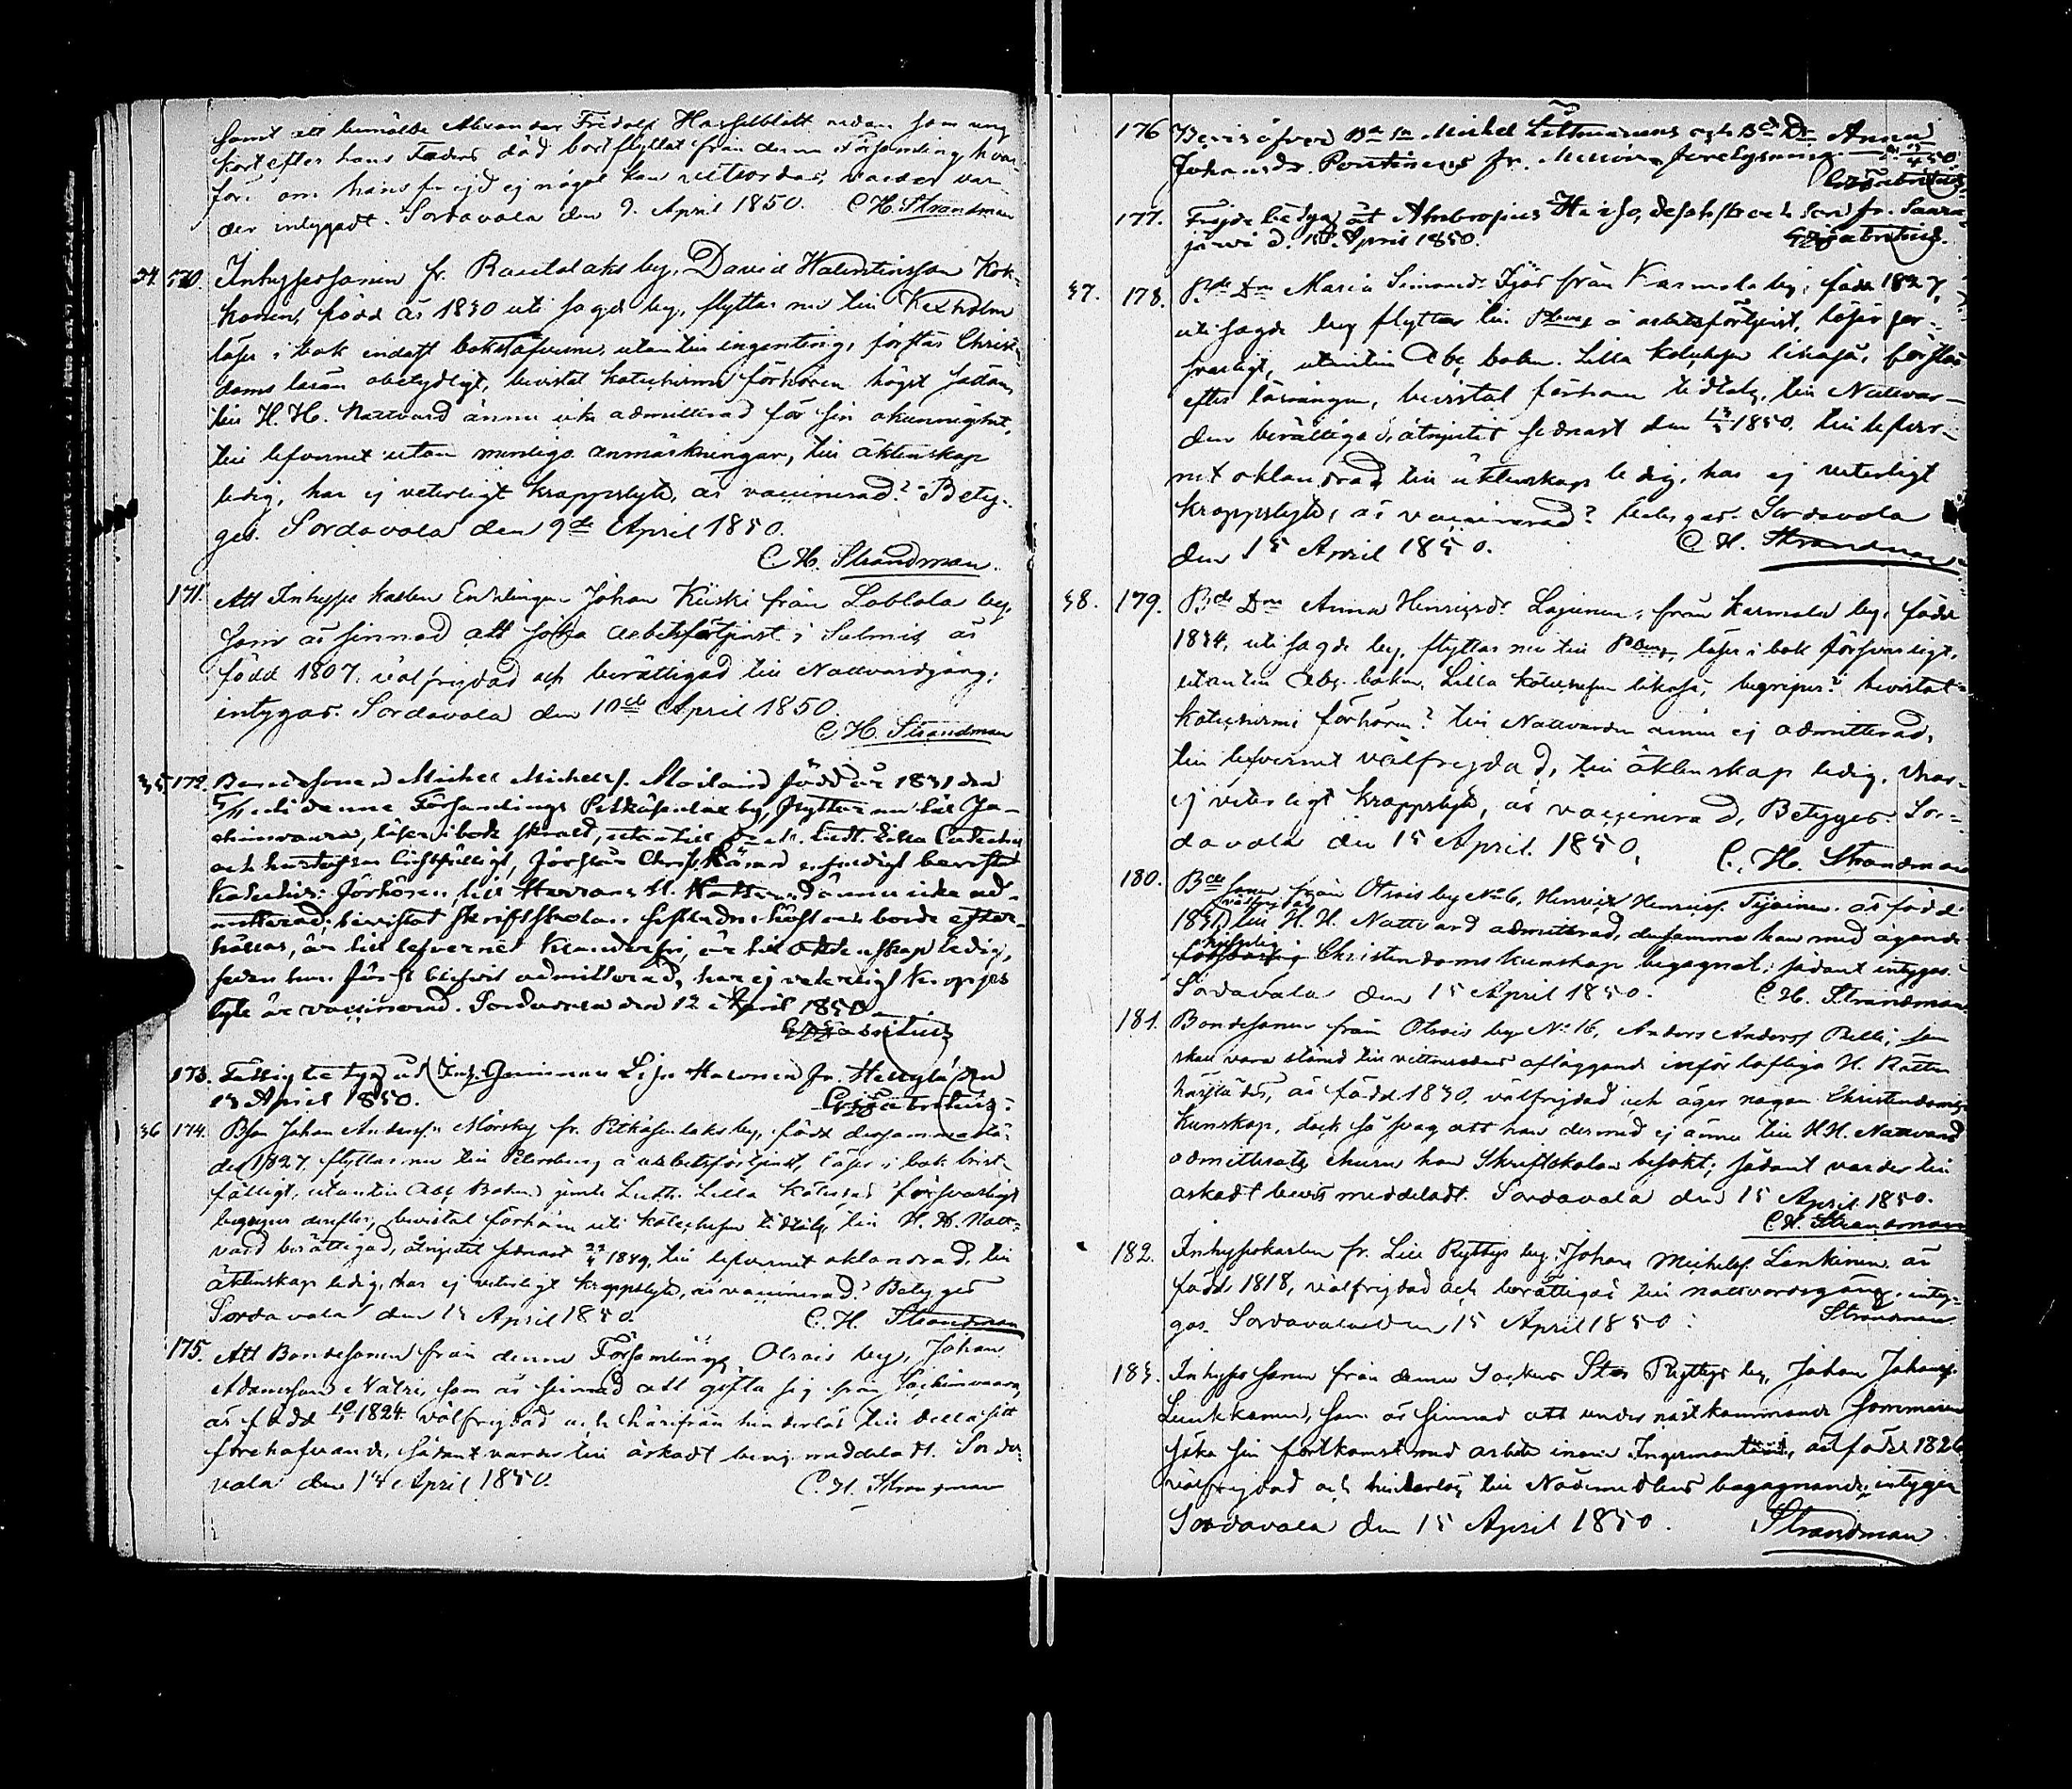 samt att bemälde Alexander Fridolf Hasselblatt redan som ung
kort efter hans Faders död bortflyttat från denna Församling, hvar-
före om hans frejd ej något kan vitsordas, varder var-
der intygadt. Sordavala den 9. April 1850. C. H. Strandman
34. 170. Inhysessonen fr. Rautalaks by, David Valentinsson Kok-
konen, född år 1830 uti sagde by, flyttar nu till Kexholm
läser i bok endast bokstäfverne, utantill ingenting, förstår Christen-
doms läran obetydligt, bevistat katechismi förhören högst sällan,
till H. H. Nattvard ännu icke admitterad för sin okunnighet,
till lefvernet utan menliga anmärkningar, till äktenskap
ledig, har ej veterligt kroppslyte, är vaccinerad? Bety-
gas. Sordavala den 9de April 1850.
C. H. Strandman.
171. Att Inhyses karlen Enklingen Johan Kiiski från Läskelä by,
som är sinnad att söka arbetsförtjenst i Salmis är
född 1807. välfrejdad och berättigad till Nattvardsgång;
intygas. Sordavala den 10de April 1850.
C. H. Strandman
35. 172. Bondesonen Michel Michelss. Moilanen född år 1831 den
5/11 uti denne Församlings Pitkäsenlax by, flyttar nu till Ja-
chimvaara, läser i bok skralt, utantill Luth. Lilla Catechis
och hustaflan bristfälligt, förstår Christ. läran enfaldigt bevistat
Katechis: förhören, till Herrans H. Nattvard ännu icke ad-
mitterad; bevistat Skriftskolan borde efter-
hållas, är till lefvernet klanderfri, är till äktenskap ledig,
sedan han först blifvit admitterad, har ej veterligt kropps
lyte är vaccinerad. Sordavala den 12 April 1850.

173. Fattigbetyg åt Inh. Quinnan Lisa Halonen fr. Helylä den
13 April 1850.
36. 174. Bson Johan Anderss. Mörsky fr. Pitkäsenlaks by, född dersammastä-
des 1827. flyttar nu till Petersburg å arbetsförtjenst, läser i bok brist-
fälligt, utantill Abc Boken jemte Luth. Lilla Kateches försvarligt
begriper derefter, bevistat förhören uti katechesen tidtals, till H. H. Natt-
vard berättigad, åtnjutit sednast 1849, till lefvernet oklandrad, till
äktenskap ledig, har ej veterligt kroppslyte, är vaccinerad? Betygas
Sordavala den 15 April 1850. C. H. Strandman
175. Att Bondesonen från denne Församlings Otrais by, Johan
Adamsson Natri, som är sinnad att gifta sig från Jachimvaara,
är född 1824 välfrejdad och härifrån hinderlös till detta sitt
förehafvande, sådant varder till äskadt bevis meddeladt. Sorda-
vala den 14 April 1850. C. H. Strandman
176 Bevis öfver Bde Sn Michel Littmanens och Bde Dr Anna
Johansdr. Pontinens fr. lysning
177. Frejdebetyg åt Ambrosius fr. Saara
järvi d. 15. April 1850.
37. 178. Bde Dn Maria Simonsdr. Ijäs från Karmala by, född 1827,
uti sagde by flyttar till Pburg å arbetsförtjenst, läser för-
svarligt, utantill Abc boken. Lilla Katechesen likaså, förstår
efter läsningen, bevistat förhören tidtals, till Nattvar-
den berättigad, åtnjutit sednast den 1850. till lefver-
net oklandrad till äktenskap ledig, har ej veterligt
kroppslyte, är vaccinerad? Betygas. Sordavala
den 15 April 1850. C. H. Strandman
38. 179. Bde Dn Anna Henricsdr. Lajunen, från Karmala by, född
1834, uti sagde by, flyttar nu till Pburg, läser i bok försvarligt,
utantill Abc boken, Lilla katechesen likaså, begriper? bevistat
Katechismi förhören? till Nattvarden ännu ej admitterad,
till lefvernet välfrejdad, till äktenskap ledig, har
ej veterligt kroppslyte, är vaccinerad, Betygas Sor-
davala den 15 April 1850.
C. H. Strandman
180. Bde sonen från Otrais by No 6, Henrik Henricss. Tijainen är född
1831, välfrejdad till H. H. Nattvard admitterad, densamma han med ägande
hufslig försvarlig Christendoms kunskap begagnat; sådant intygas.
Sordavala den 15 April 1850. C. H. Strandman
181. Bondesonen från Otrais by No 16, Anders Anderss. Pelli, som
skall vara stämd till vittnesmåls afläggande inför lofliga H. Rätten
härstädes, är född 1830. välfrejdad och äger någon Christendoms
kunskap, dock så svag att han dermed ej ännu till H. H. Nattvard
admitterats ehuru han Skriftskolan besökt; sådant varder till
äskadt bevis meddeladt. Sordavala den 15 April 1850.
C. H. Strandman
182. Inhyseskarlen fr. Lill Ryttys by, Johan Michelss. Lankinen är
född 1818, välfrejdad och berättigad till nattvardsgång; inty-
gas. Sordavala den 15 April 1850. Strandman
183. Inhyses sonen från denna Sockns Stor Ryttys by, Johan Johanss.
Luukkonen, som är sinnad att under nästkommande sommaren
söka sin fortkomst med arbete inom Ingermanland, är född 1826
välfrejdad och hinderlös till Nådemedlens begagnande, intygas
Sordavala den 15 April 1850. Strandman